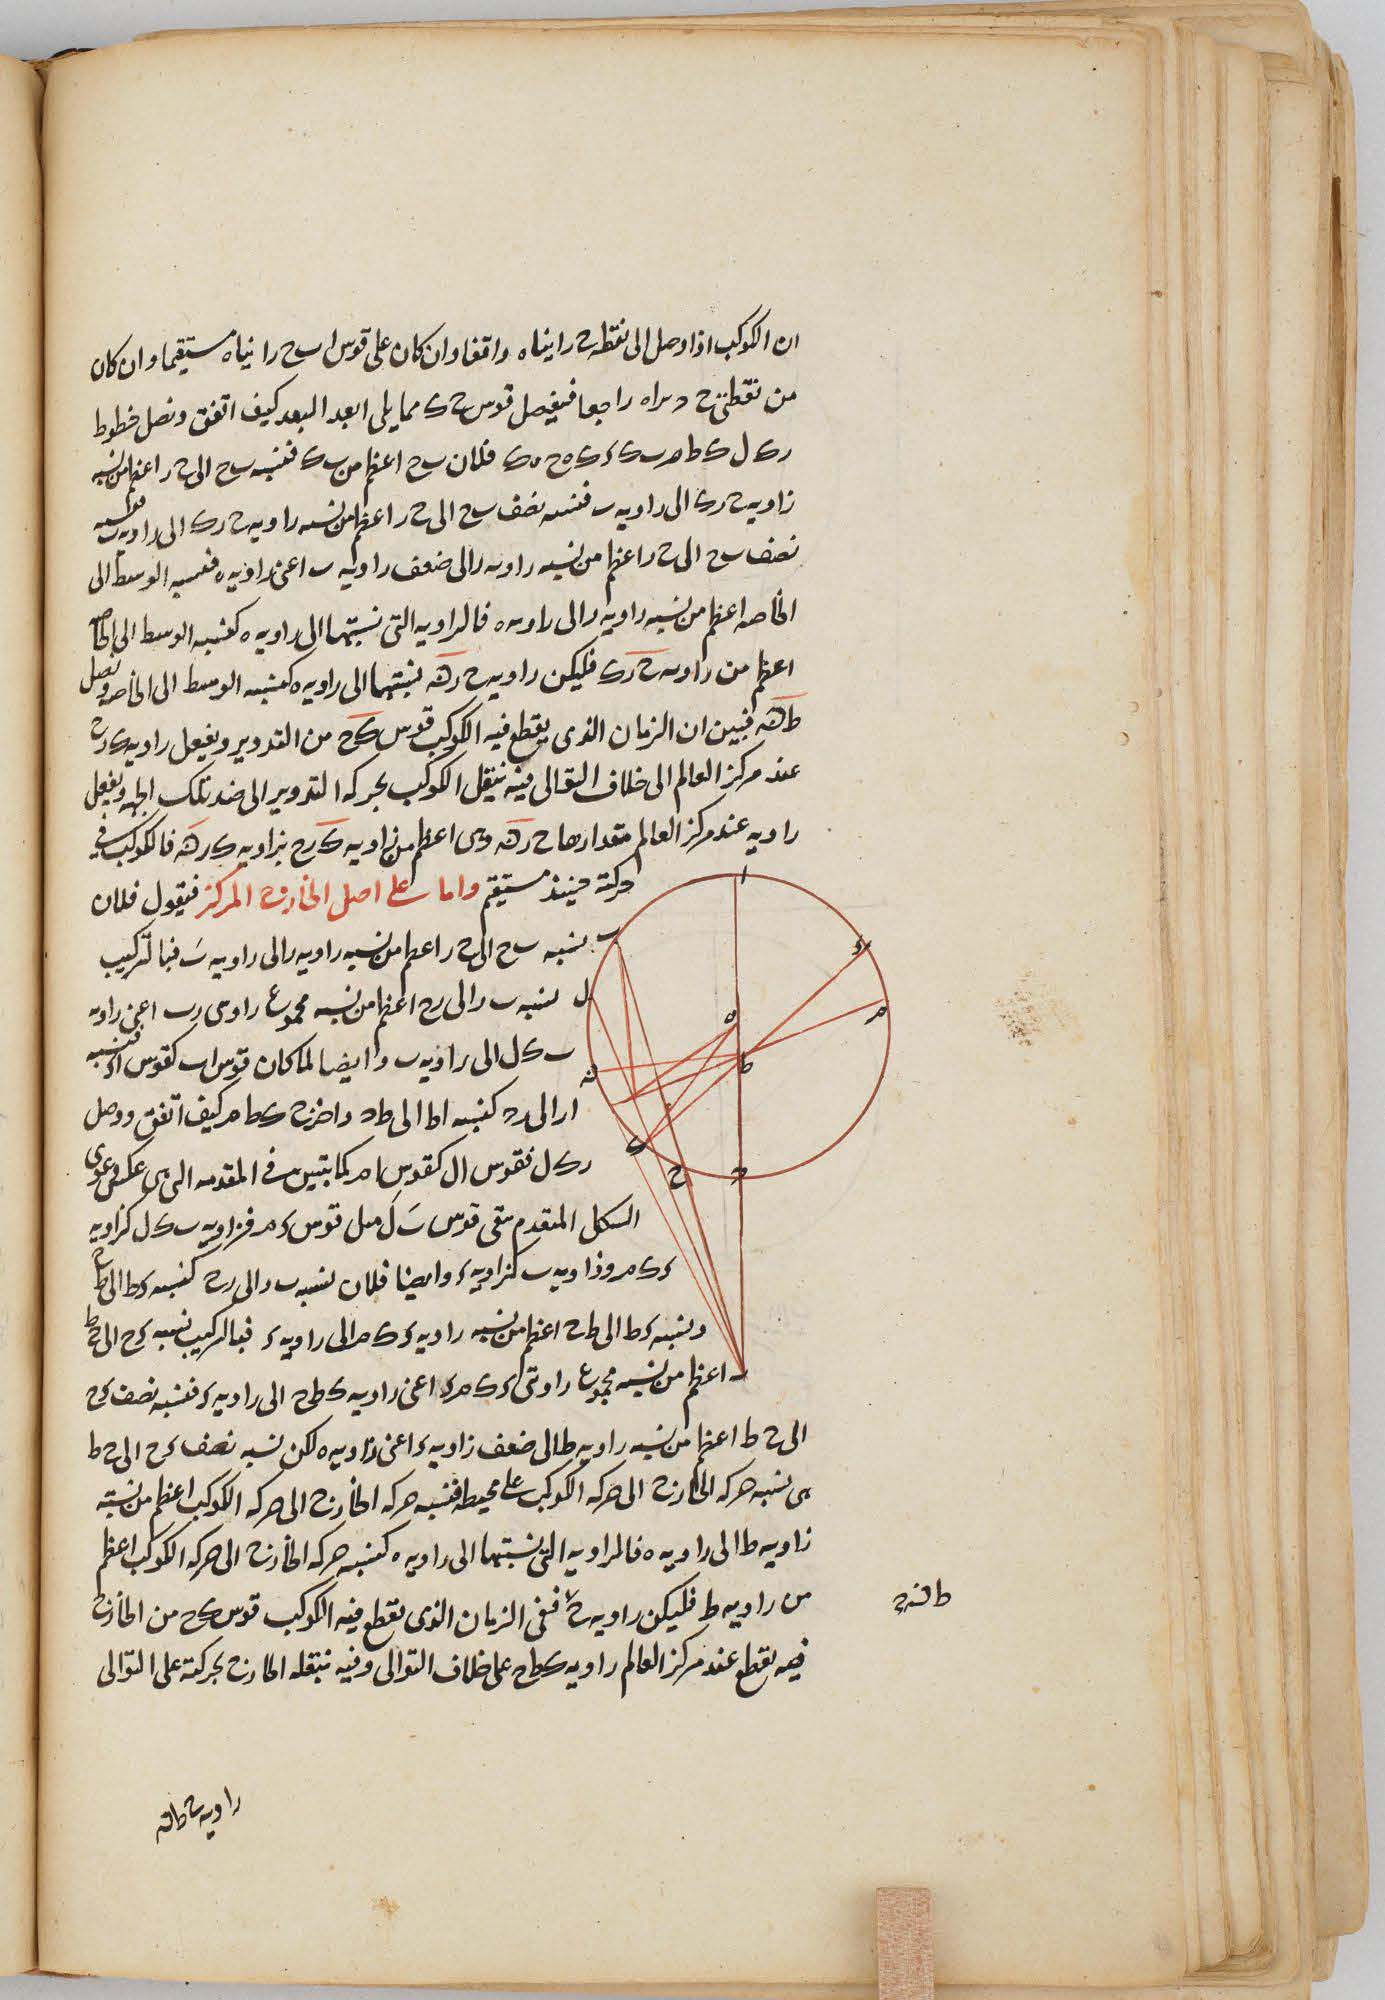 ان الكوكب اذا وصل الى نقطه ح رايناه واقفا وان كان على قوس ا ب ح راىناه مستقيما وان كان
من نقطتى ح د نراه راجعا فيفصل قوس ح ك مما يلى ابعد البعد كيف اتفق ونصل خطوط
ر ك ل ك ط م ب ك ء ك ه ح ه ك فلان ب ح اعظم من ب ك فنسبه ب ح الى ح ر اعظم من نسبه
زاويه ح ر ك الى راويه ب فنسبه نصف ب ح الى ح ر اعظم من نسبه راويه ح ر ك الى راويه ب فنسبه
نصف ب ح الى ح ر اعظم من نسبه راويه ر الى ضعف راويه ب اعنى راويه ه فنسبه الوسط الى
الخاصه اعظم من نسبه راويه ر الى راويه ه فالزاويه التى نسبتها الى راويه ه كنسبه الوسط الى الخاصه
اعظم من راويه ح ر ك فليكن راويه ح ر ه نسبتها الى راويه ه كنسبه الوسط الى الخاصه ونصل
فبين ان الزمان الذى يقطع فيه الكوكب قوس ك ح من التدوير ويفعل راويه ك ر ح
عند مركز العالم الى خلاف التوالى فيه ينتقل الكوكب بحركه التدوير الى ضد تلك الجهه ويفعل
راويه عند مركز العالم مقدارها ح ر ه وهى اعظم من زاويه ك ر ح بزاويه ك ر ه فالكوكب فى
حركته حينئذ مستقيم واما على اصل الخارج المركز فيقول فلان
نسبه ب ح الى ح ر اعظم من نسبه راويه ر الى راويه ب فبالتركيب
نسبه ب ر الى ر ح اعظم من نسبه مجموع راويتى ر ب اعنى راويه
ب ك ل الى راويه ب وايضا لما كان قوس ا ب كقوس ا ء فنسبه
ا ر الى ر ح كنسبه ا ط الى ط ح واخرج ك ط م كيف اتفق ووصل
ر ك ل فقوس ا ل كقوس ا م كما يتبين فى المقدمه التى هى عكس دعوى
الشكل المتقدم يبقى قوس ب ل مثل قوس ء م فزاويه ب ك ل كزاويه
ء ك م وزاويه ب كزاويه ء وايضا فلان نسبه ب ر الى ر ح كنسبه ء ط الى ط ح
ونسبه ء ط الى ط ح اعظم من نسبه راويه ء ك م الى راويه ء فبالتركيب نسبه ء ح الى ح ط
اعظم من نسبه مجموع راويتى ء ك م ء اعنى راويه ك ط ح الى راويه ء فنسبه نصف ء ح
الى ح ط اعظم من نسبه راويه ط الى ضعف زاويه ء اعنى زاويه ه لكن نسبه نصف ء ح الى ح ط
هى نسبه حركه الخارج الى حركه الكوكب على محيطه فنسبه حركه الخارج الى حركه الكوكب اعظم من نسبته
زاويه ط الى راويه ه فالزاويه التى نسبتها الى راويه ه كنسبه حركه الخارج الى حركه الكوكب اعظم
من راويه ط فليكن راويه ح ففى الزمان الذى يقطع فيه الكوكب قوس ك ح من الخارج
فيه يقطع عند مركز العالم راويه ك ط ح على خلاف التوالى وفيه ينقله الخارج بحركته على التوالى
راويه ح ط
ا
ب
ء
ل
م
ه
ط
ك
ح
ر